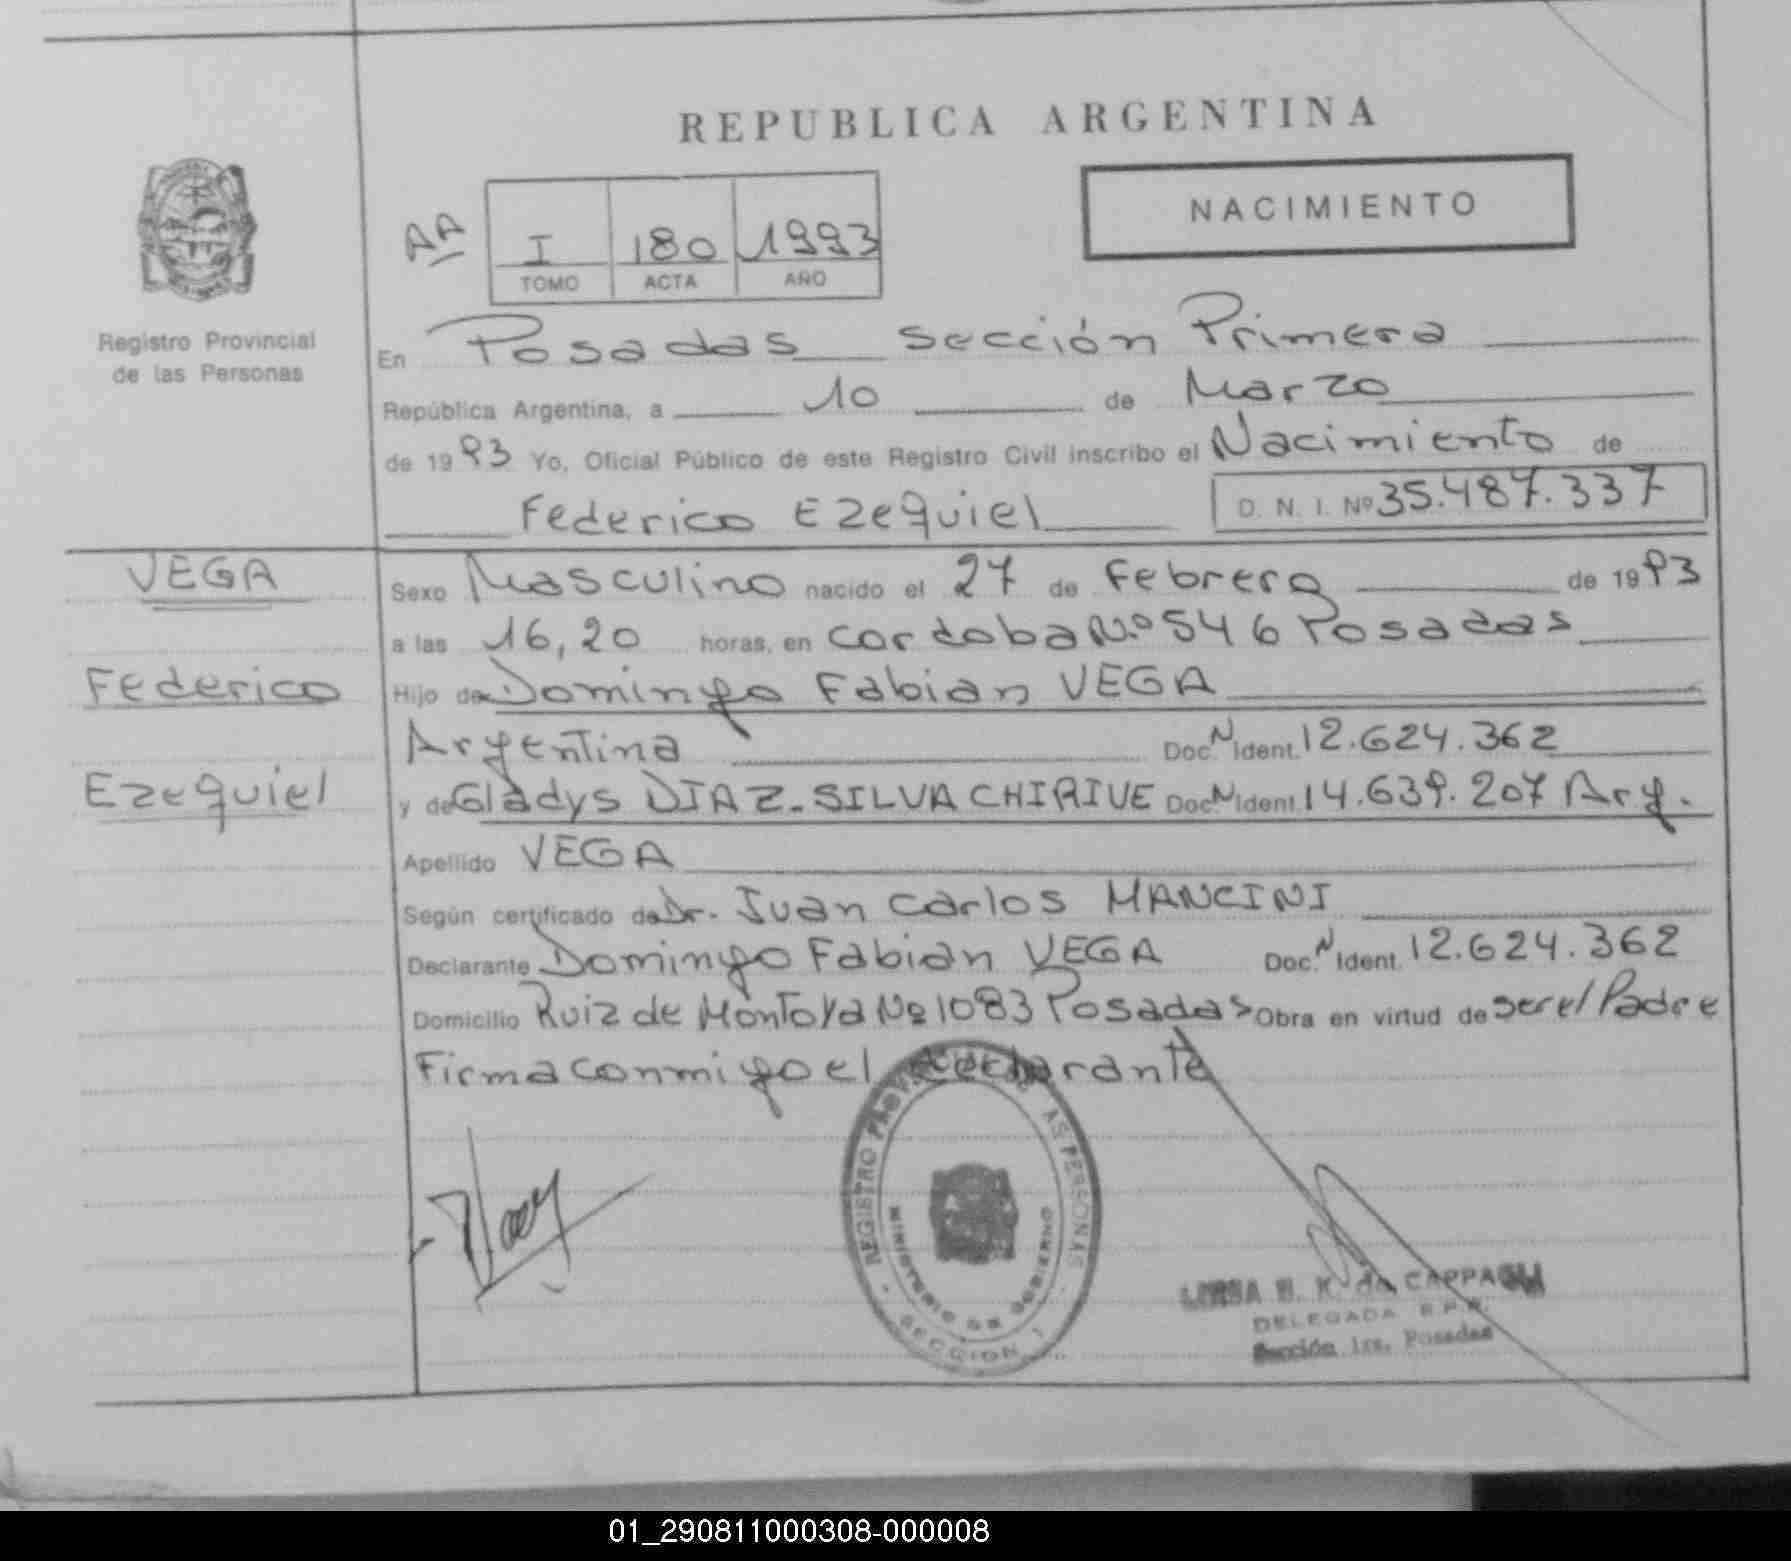 REPUBLICA ARGENTINA
NACIMIENTO
AA
I 180 1993
TOMO ACTA AÑO
Registro Provincial
de las Personas
En Posadas sección Primera
República Argentina, a 10 de Marzo
de 1993 Yo, Oficial Público de este Registro Civil inscribo el Nacimiento de
Federico Ezequiel D. N. I. Nº 35.487.337
VEGA
Federico
Ezequiel
Sexo Masculino nacido el 27 de Febrero de 1993
a las 16,20 horas, en Cordoba Nº 546 Posadas
Hijo de Domingo Fabian VEGA
Argentina Doc. N Ident. 12.624.362
y de Gladys DIAZ-SILVA CHIRIVE Doc. N Ident. 14.639.207 Arg.
Apellido VEGA
Según certificado de Dr. Juan Carlos MANCINI
Declarante Domingo Fabian VEGA Doc. N Ident. 12.624.362
Domicilio Ruiz de Montoya Nº 1083 Posadas Obra en virtud de ser el Padre
Firma conmigo el declarante
REGISTRO PROVINCIAL DE LAS PERSONAS
MINISTERIO DE GOBIERNO
SECCION 1
DELEGADA R.P.P.
Sección 1ra. Posadas
01_290811000308-000008